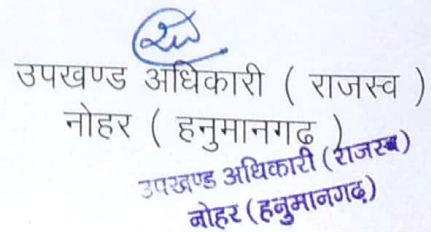 उपखण्ड अधिकारी ( राजस्व )
नोहर ( हनुमानगढ़ )
उपखण्ड अधिकारी (राजस्व)
नोहर (हनुमानगढ़)